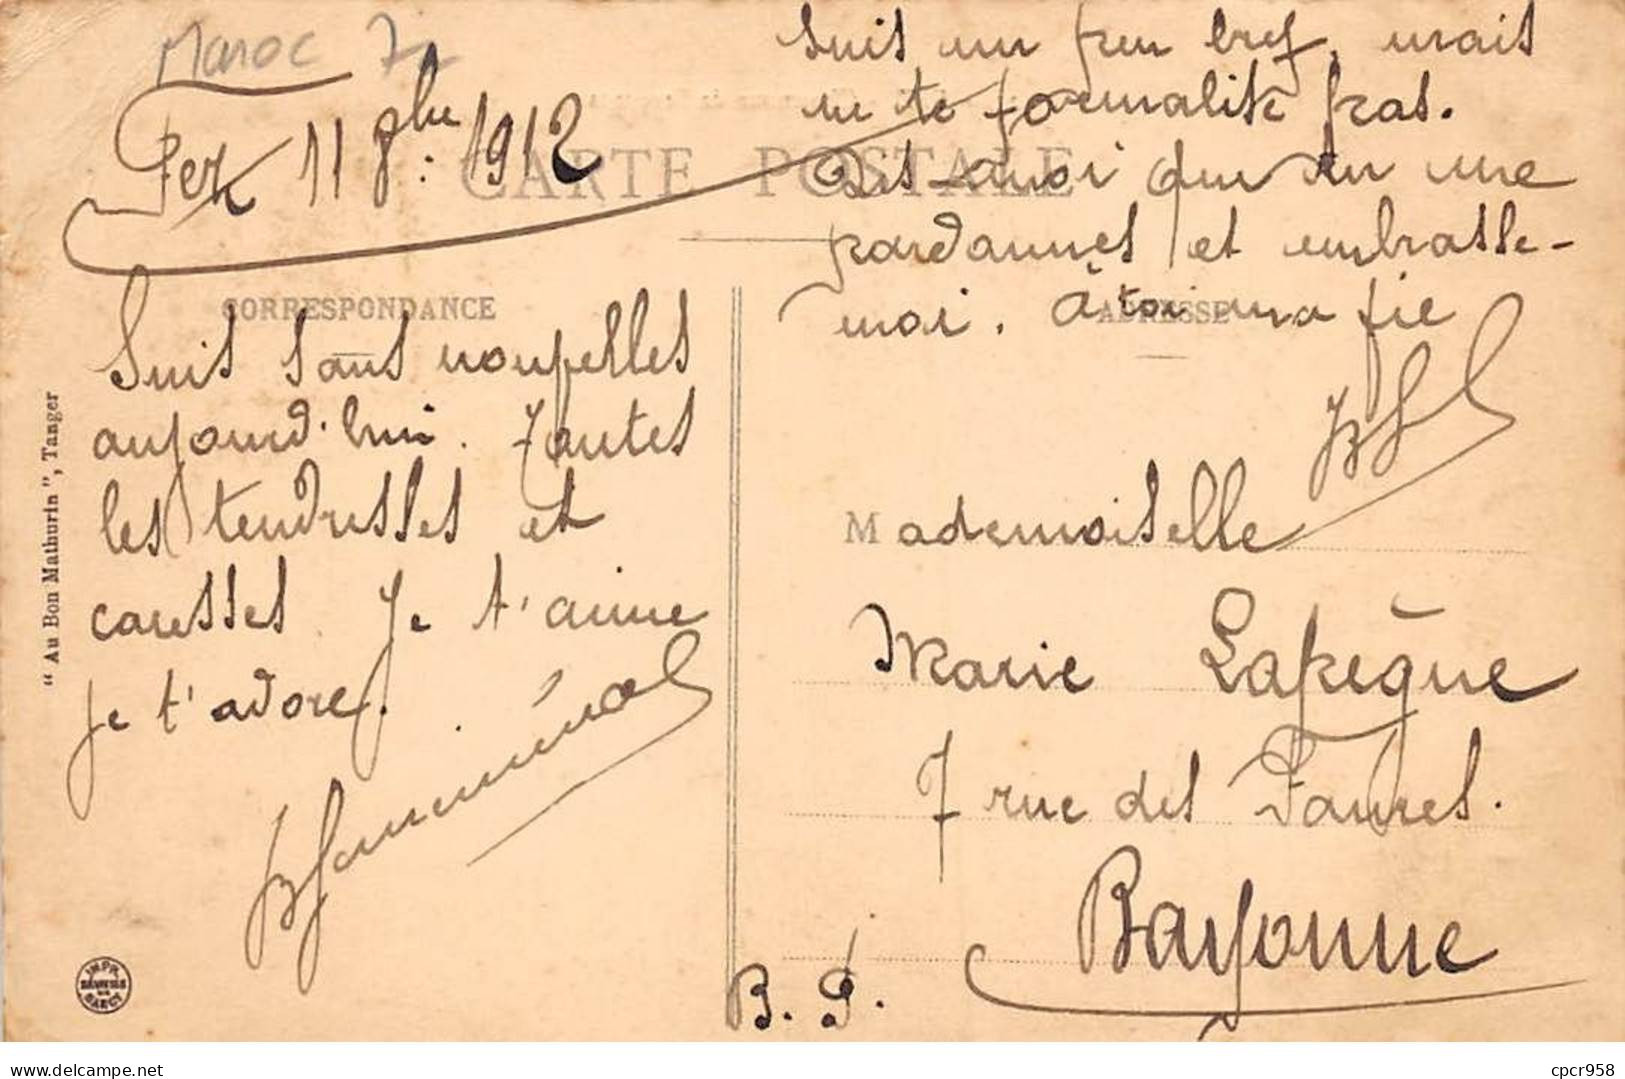 Maroc 72
Fez 11 8bre: 1912
CARTE POSTALE
CORRESPONDANCE
Suis sans nouvelles
aujourd'hui. Toutes
les tendresses et
caresses Je t'aime
je t'adore.
suis un peu bref, mais
ne te formalise pas.
Dis-moi que tu me
pardonnes et embrasse-
moi. à toi ma vie
ADRESSE
Mademoiselle
Marie Lapègue
7 rue des Faures.
Bayonne
B. P.
"Au Bon Mathurin", Tanger
IMPR.
NANCY
delcampe.net
cpcr958